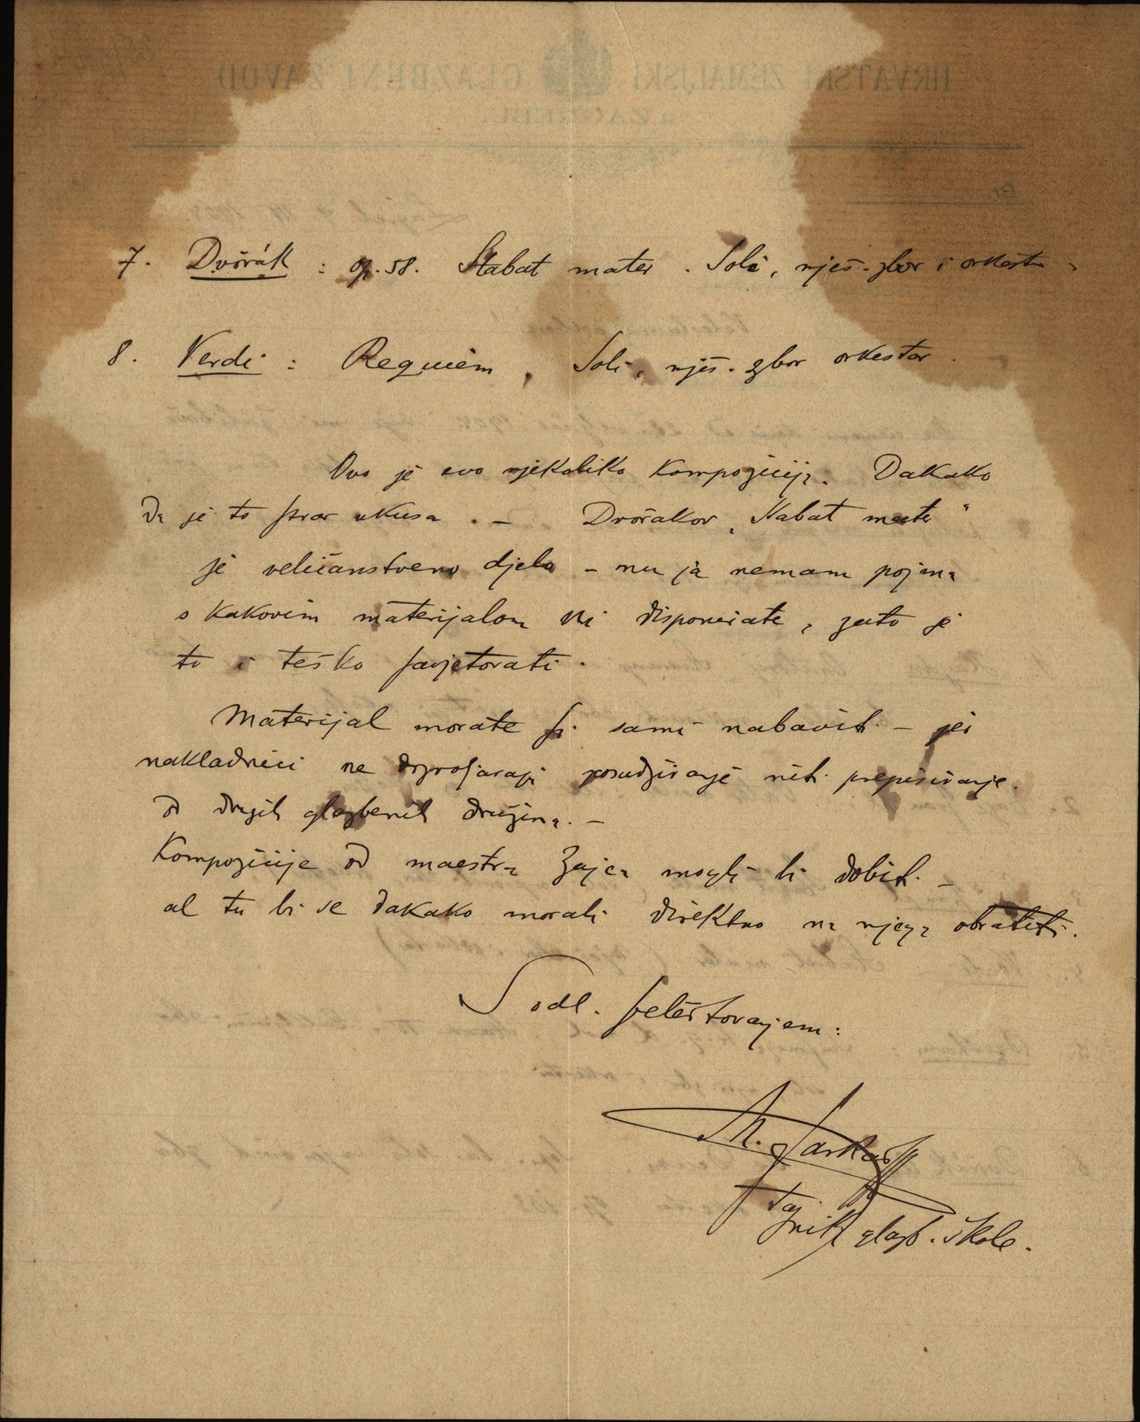 7. Dvořák : op. 58. Stabat mater . Soli, mješ. zbor i orkestr
8. Verdi : Requiem , Soli, mješ. zbor orkestar .
Ovo je evo njekoliko kompozicija. Dakako
da je to stvar ukusa . – Dvořakov „Stabat mater“
je veličanstveno djelo – nu ja nemam pojma
o kakovim materijalom Vi disponirate, zato je
to i teško savjetovati .
Materijal morate si sami nabaviti – jer
nakladnici ne dozvoljavaju posudjivanje niti prepisivanje
od drugih glazbenih družina. –
Kompozicije od maestra Zajca mogli bi dobiti –
al tu bi se dakako morali direktno na njega obratiti.
S odl. štovanjem:
Tajnik glazb. škole.